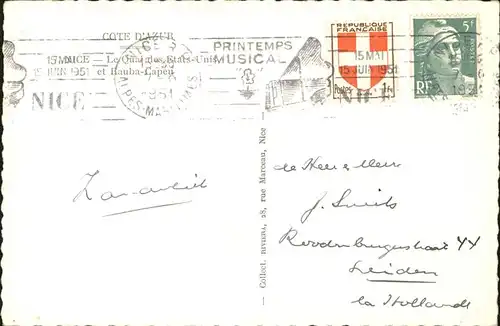 COTE D'AZUR
NICE — Le Quai des Etats-Unis
et Rauba-Capéu
15 MAI
15 JUIN 1951
NICE
NICE R.P.
1951
ALPES-MARITIMES
PRINTEMPS
MUSICAL
REPUBLIQUE
FRANÇAISE
15 MAI
15 JUIN 1951
POSTES 1F
5F
RF
Collect. 28, rue Marceau, Nice
J. Smits
Leiden
la Hollande